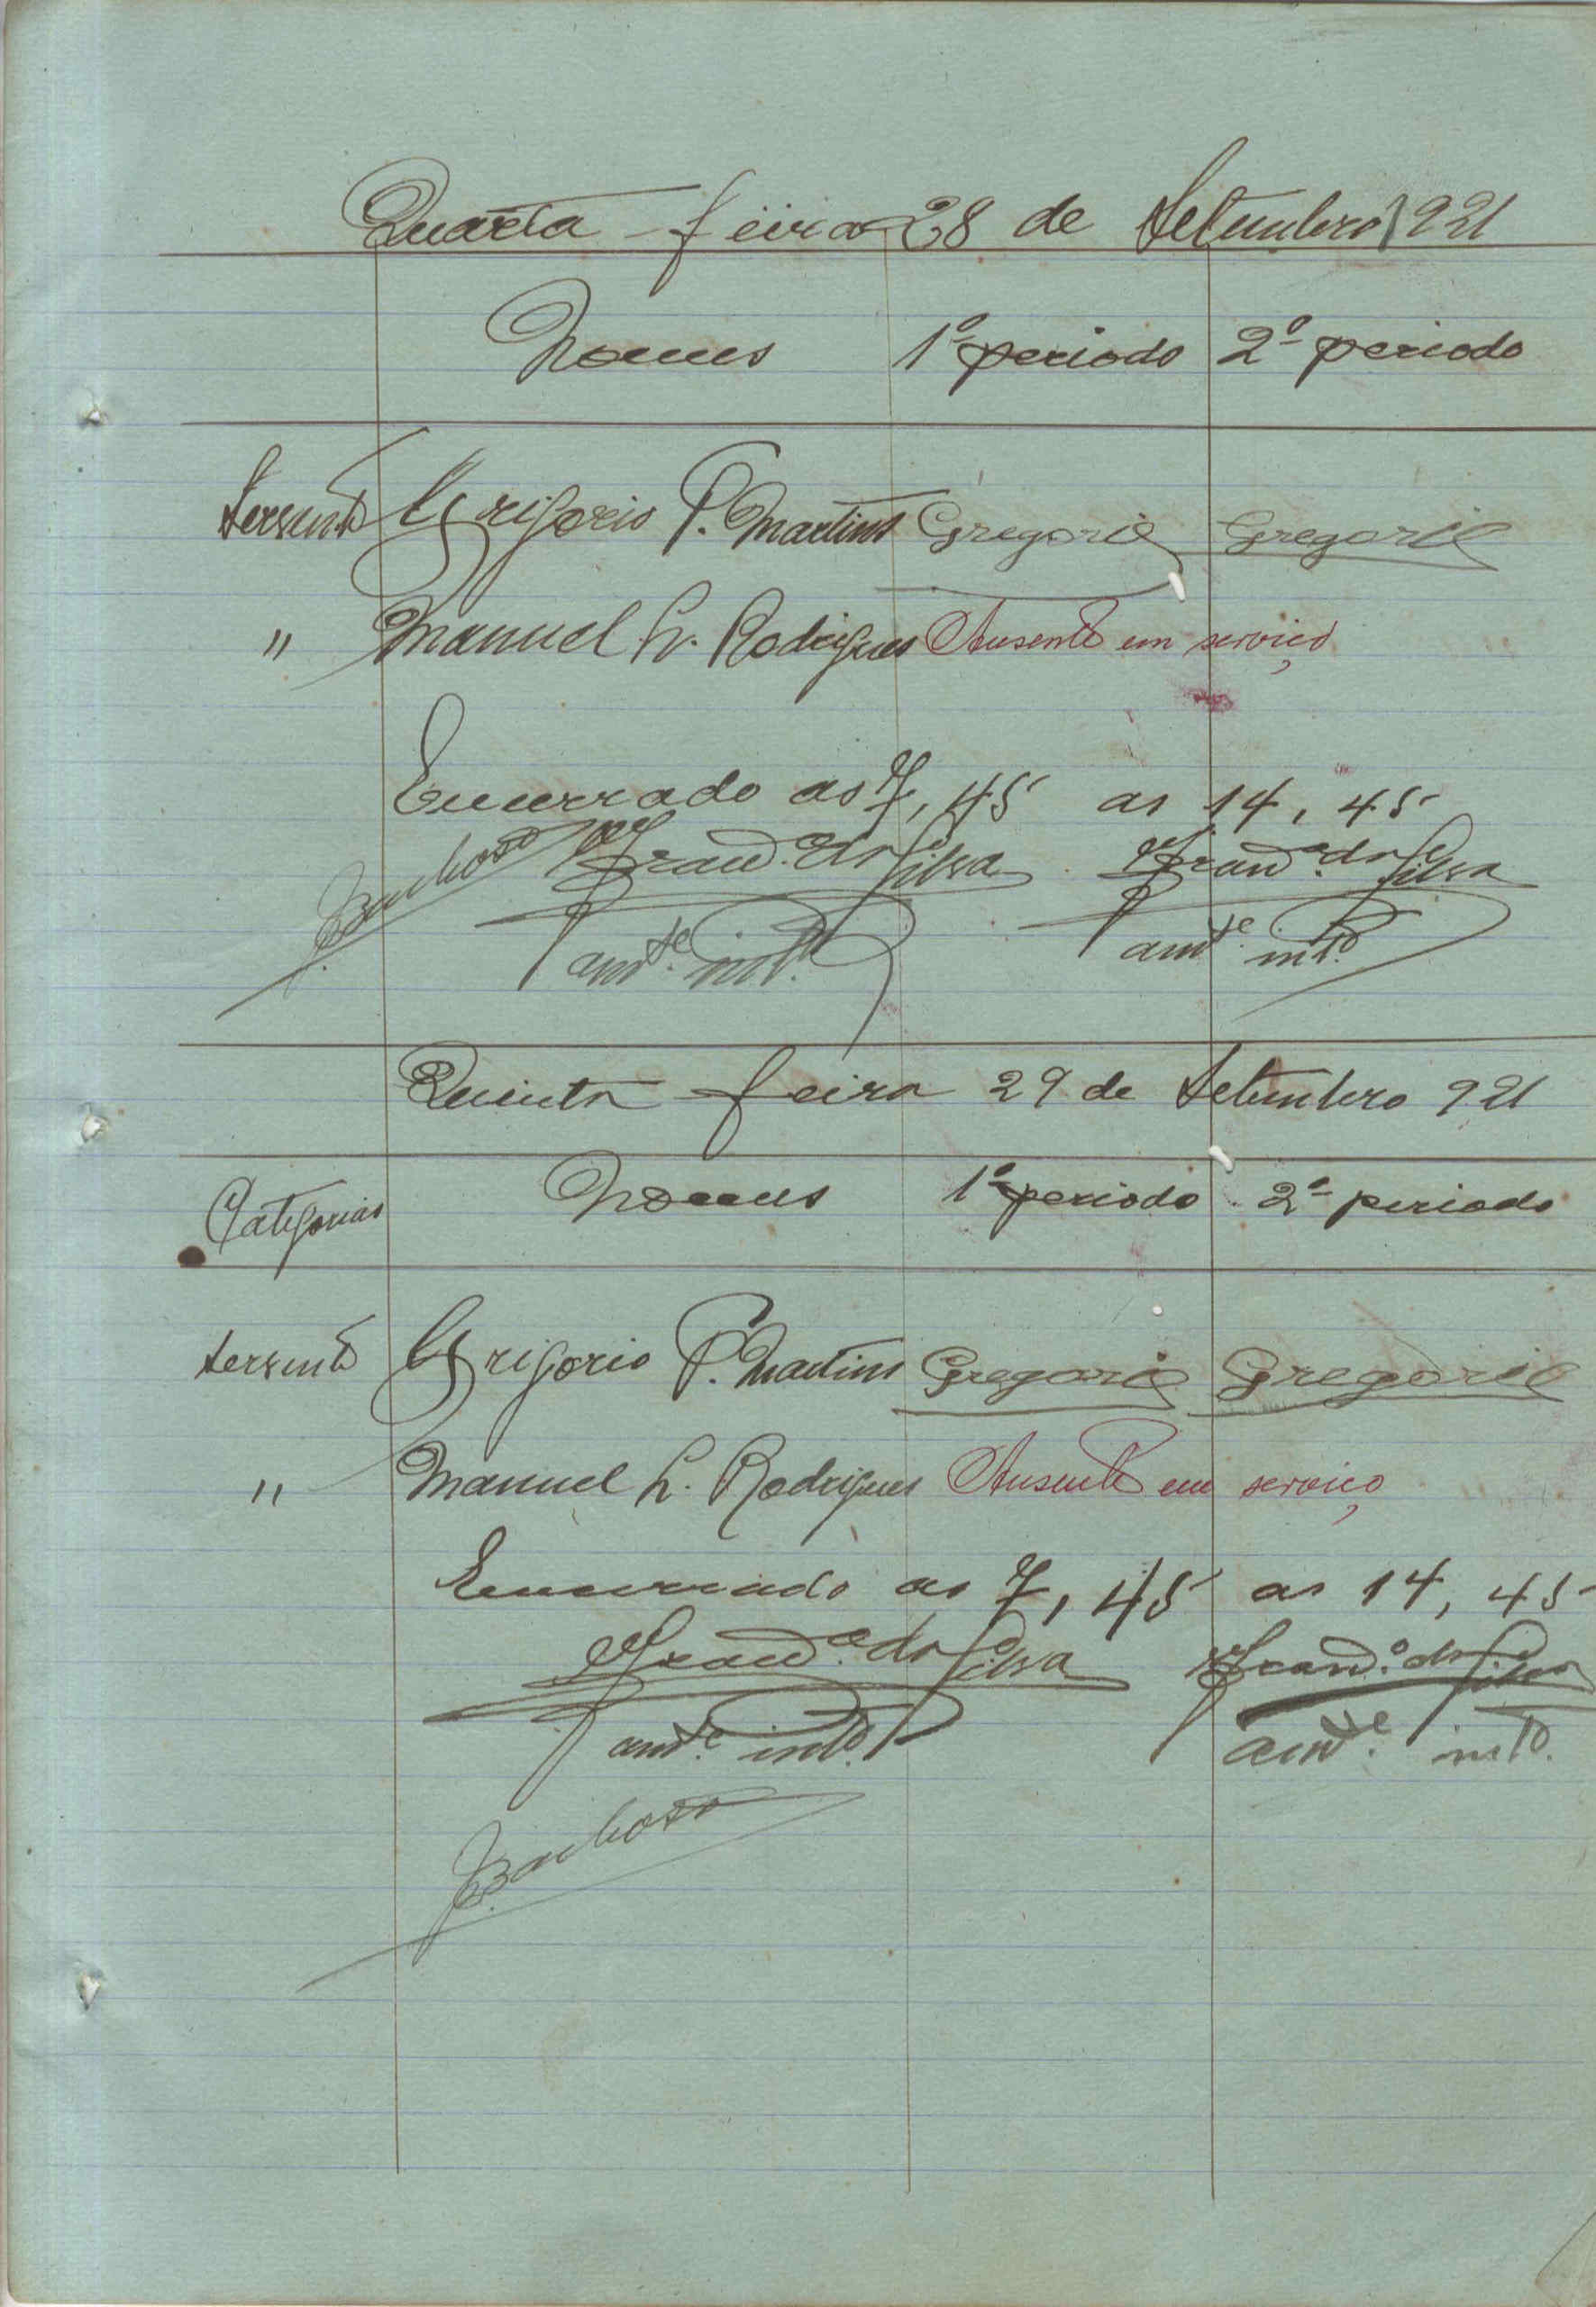 Quarta-feira 28 de Setembro 1921
Nomes 1º periodo 2º periodo
Servente Grigorio P. Martins Gregorio Gregorio
" Manuel L. Rodrigues Ausente em serviço
Encerrado as 7,45 as 14,45
Barbosa Francº da Silva Francº da Silva
intº. intº.
Quinta-feira 29 de Setembro 921
Categorias Nomes 1º periodo 2º periodo
Servente Grigorio P. Martins Gregorio Gregorio
" Manuel L. Rodrigues Ausente em serviço
Encerrado as 7,45 as 14,45
Francº da Silva Francº da Silva
intº. intº.
Barbosa